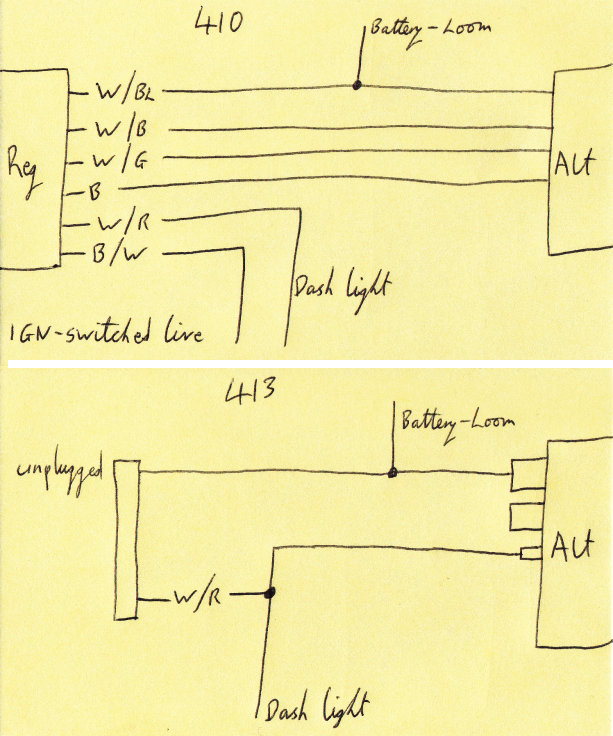 410
Battery-Loom
W/BL
W/B
Reg
W/G
Alt
B
W/R
B/W
Dash light
IGN-switched live
413
Battery-Loom
unplugged
Alt
W/R
Dash light